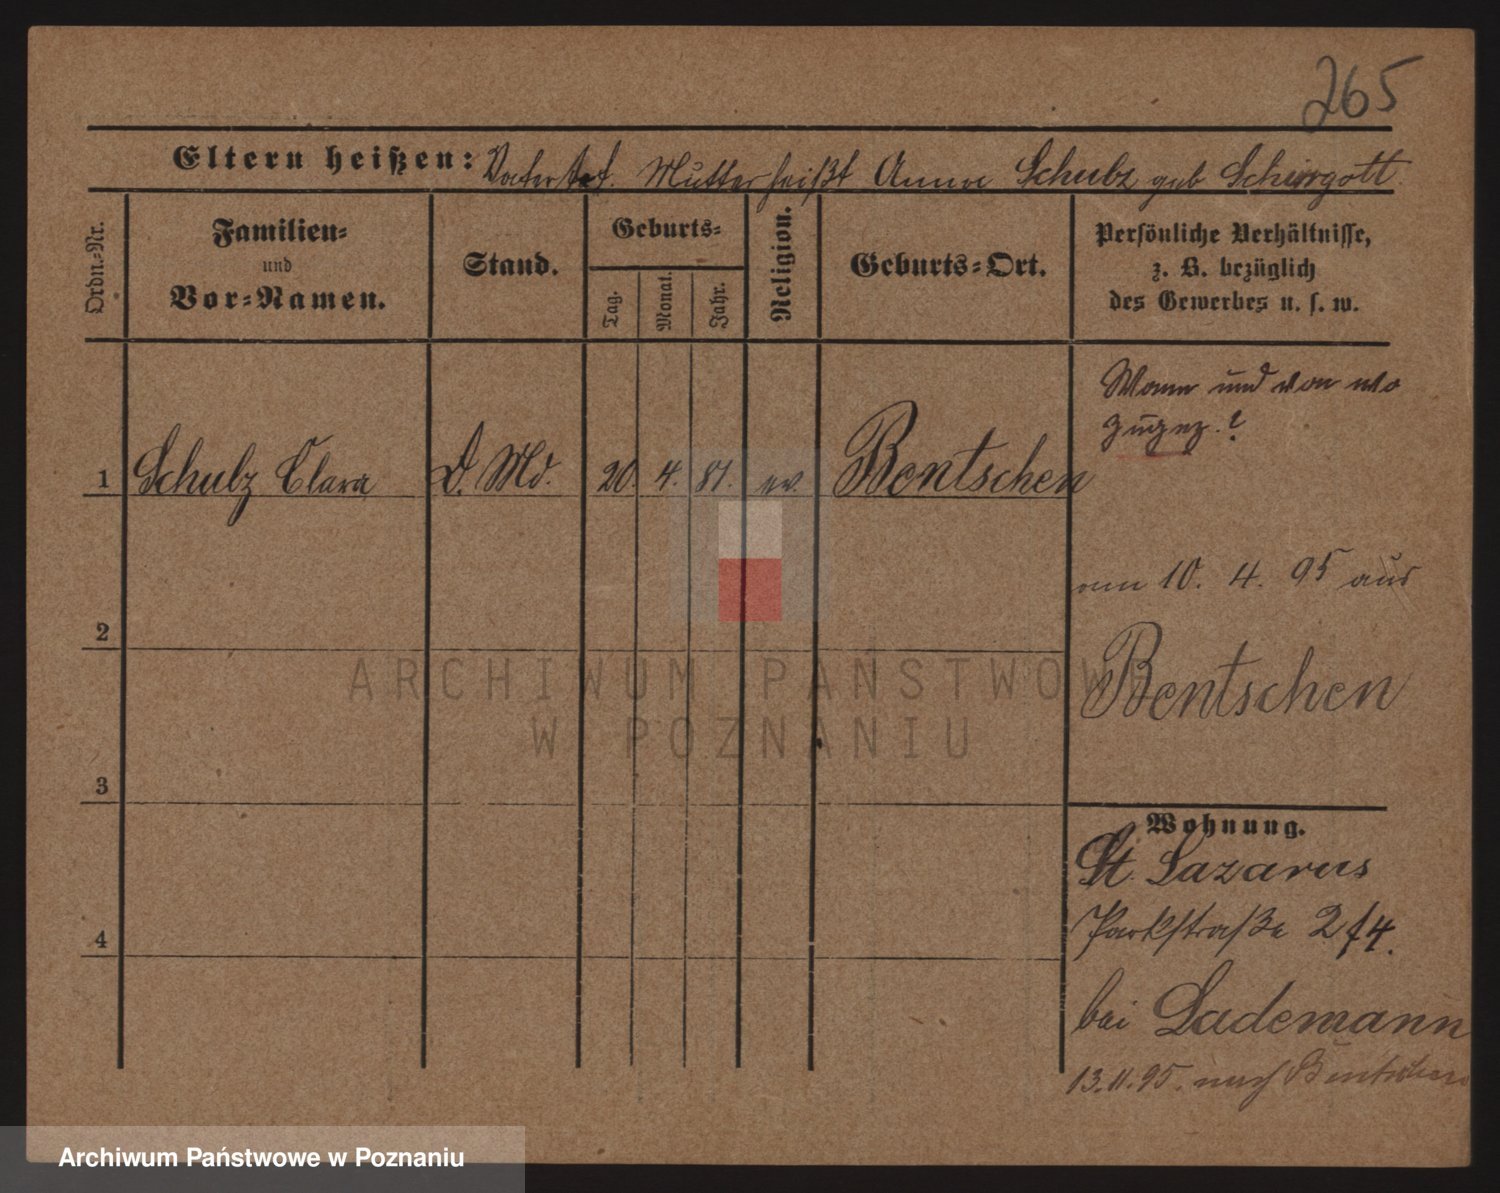 265
Eltern heißen: Vater tot. Mutter heißt Anna Schulz geb Schirrgott
Ordn.-Nr.
Familien-
und
Vor-Namen.
Stand.
Geburts-
Tag.
Monat.
Jahr.
Religion.
Geburts-Ort.
Persönliche Verhältnisse,
z. B. bezüglich
des Gewerbes u. s. w.
Wann und von wo
zugez.?
1 Schulz Clara D. Md. 20. 4. 81. ev. Bentschen
am 10. 4. 95 aus
Bentschen
2
3
4
Wohnung.
St. Lazarus
Parkstraße 2 f 4.
bei Lademann
13.11.95. nach Bentschen
ARCHIWUM PAŃSTWOWE
W POZNANIU
Archiwum Państwowe w Poznaniu